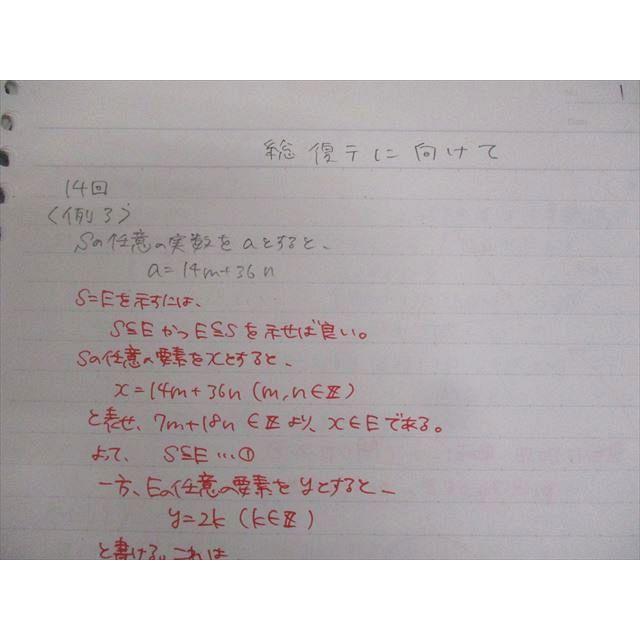 1
総復テに向けて
14回
〈例3〉
Sの任意の実数をaとすると、
a=14m+36n
S=Eを示すには、
S⊆EかつE⊆Sを示せば良い。
Sの任意の要素をxとすると、
x=14m+36n (m,n∈ℤ)
と表せ、7m+18n∈ℤより、x∈Eである。
よって、 S⊆E…①
一方、Eの任意の要素をyとすると、
y=2k (k∈ℤ)
と書ける。これは